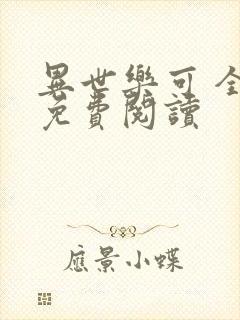 異世樂可 全
免費閱讀
應景小蝶